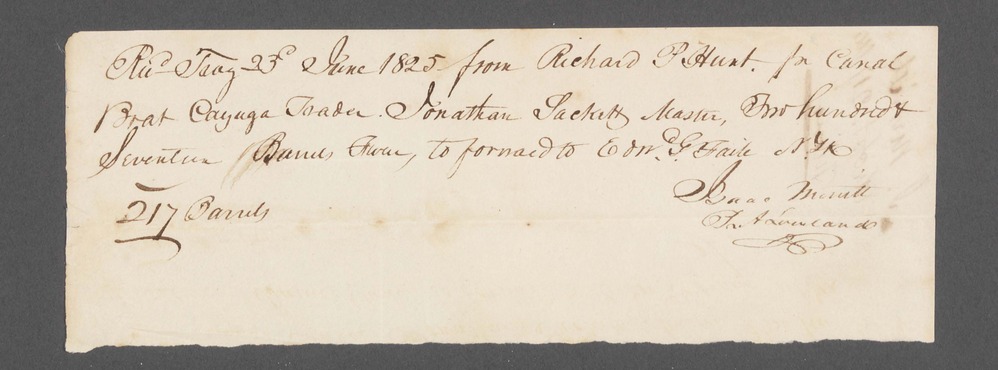 Rec'd Troy 23d June 1825 from Richard P Hunt. pr Canal
Boat Cayuga Trader Jonathan Sackett Master, Two hundred &
Seventeen Barrels Flour, to forward to Edwd. G. Faile N. Yk
217 Barrels
Isaac Merritt
Pr A Loveland